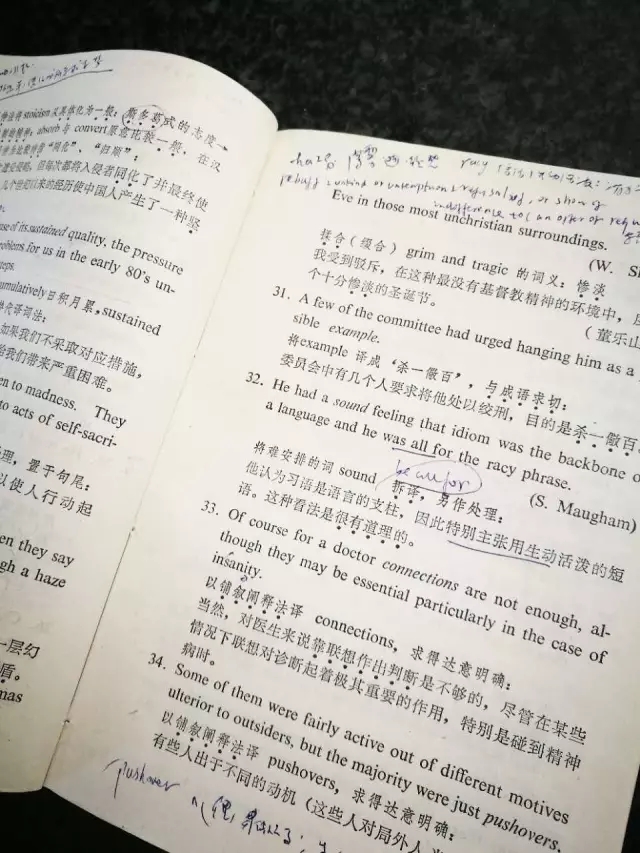 替法将 stoicism 又具体化为一般:斯多葛式的态度→
absorb 与 convert 原意
“同化”、“归顺”:
但每次都将入侵者同化了并最终使
几个世纪以来的经历使中国人产生了一种坚
use of its sustained quality, the pressure
roblems for us in the early 80's un-
teps.
umulatively 日积月累, sustained
代译词法:
如果我们不采取对应措施,
给我们带来严重困难。
en to madness. They
to acts of self-sacri-
理,置于句尾:
以使人行动起
en they say
gh a haze
一层幻
盾。
mas
haze
racy
rebuff
indifference to (an offer or
Eve in those most unchristian surroundings.
(W. Sh
揉合(缀合) grim and tragic 的词义:惨淡
我受到驳斥,在这种最没有基督教精神的环境中,
个十分惨淡的圣诞节。
(董乐山
31. A few of the committee had urged hanging him as a
sible example.
将example 译成“杀一儆百”,与成语求切:
委员会中有几个人要求将他处以绞刑,目的是杀一儆百。
32. He had a sound feeling that idiom was the backbone o
a language and he was all for the racy phrase.
(S. Maugham)
be all for
将难安排的词 sound 拆译,另作处理:
他认为习语是语言的支柱,因此特别主张用生动活泼的短
语。这种看法是很有道理的。
33. Of course for a doctor connections are not enough, al-
though they may be essential particularly in the case of
insanity.
以铺叙阐释法译 connections,求得达意明确:
当然,对医生来说靠联想作出判断是不够的,尽管在某些
情况下联想对诊断起着极其重要的作用,特别是碰到精神
病时。
34. Some of them were fairly active out of different motives
ulterior to outsiders, but the majority were just pushovers,
以铺叙阐释法译 pushovers,求得达意明确:
有些人出于不同的动机(这些人对局外人
pushover